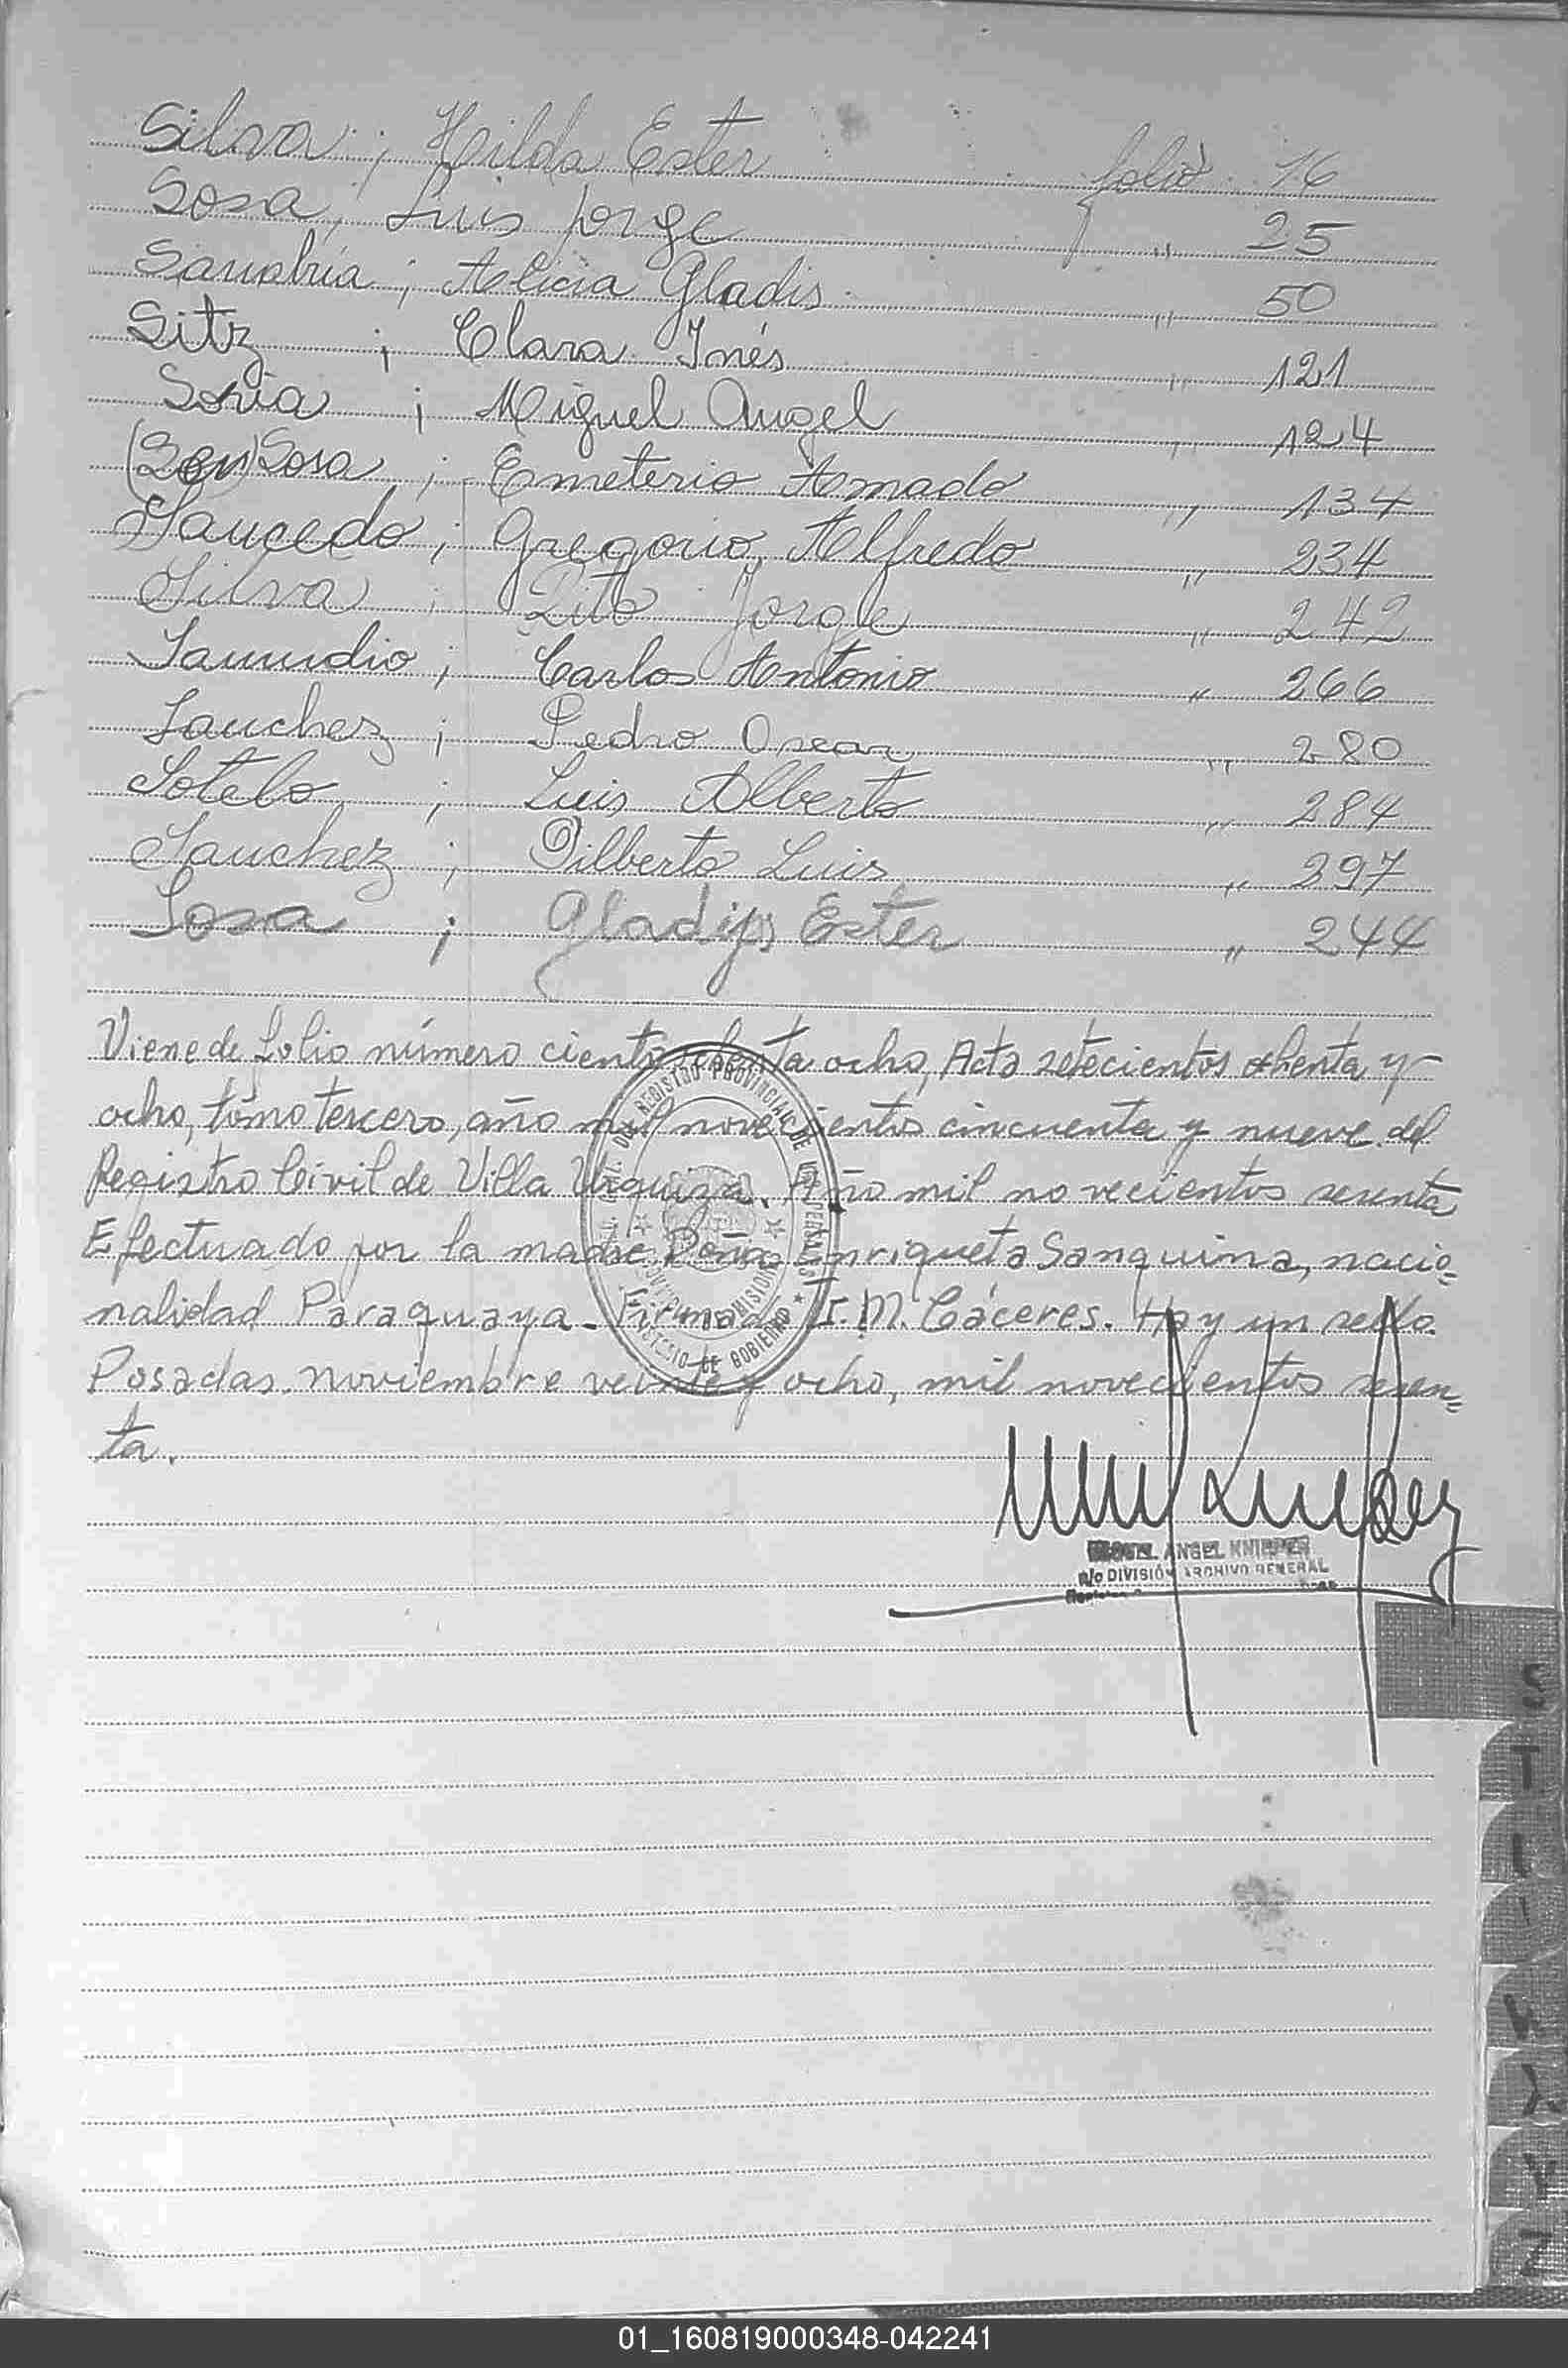 Silva ; Hilda Ester folio 16
Sosa, Luis Jorge " 25
Sanabria ; Alicia Gladis " 50
Sitz ; Clara Inés " 121
Soria ; Miguel Angel " 124
Sosa ; Emeterio Amado " 134
Saucedo ; Gregorio Alfredo " 234
Silva ; Lito Jorge " 242
Samudio ; Carlos Antonio " 266
Sanchez ; Pedro Oscar " 280
Sotelo ; Luis Alberto " 284
Sanchez ; Gilberto Luis " 297
Sosa ; Gladys Ester " 244
Viene de folio número ciento ocho, Acta setecientos ochenta y
ocho, tomo tercero, año mil novecientos cincuenta y nueve del
Registro Civil de Villa Urquiza. Año mil novecientos sesenta
Efectuado por la madre Doña Enriqueta Sanquina, nacio-
nalidad Paraguaya. Firmado M. Cáceres. Hay un sello.
Posadas, noviembre veinte y ocho, mil novecientos sesen-
ta.
REGISTRO PROVINCIAL DE
MISIONES
DE GOBIERNO
ANGEL KNIEPER
a/c DIVISIÓN ARCHIVO GENERAL
S
T
Y
Z
01_160819000348-042241